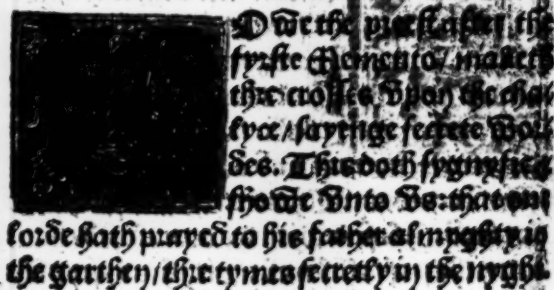 Owe the preest after the
fyrste Memento / maketh
thre crosses Vpon the cha
lyce / sayenge secrete wor
des. This doth sygnyfie &
showe Vnto Vs: that our
lorde hath prayed to his father almyghty in
the garthen / thre tymes secretly in the nyght